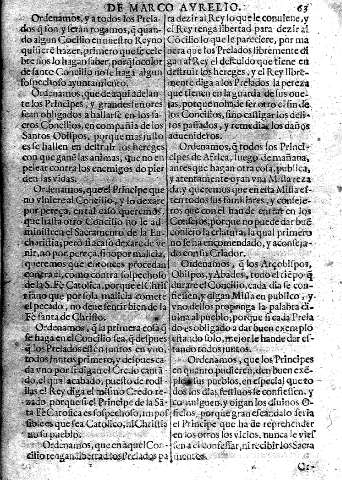 DE MARCO AVRELIO. 63
Ordenamos, y a todos los Prela
dos q̃ son y serán rogamos, q̃ quan-
do algun Concilio en nuestro Reyno
quisiere hazer, primero que se cele
bre nos lo hagan saber, porq̃ so color
de santo Concilio no se haga algun
sospechoso ayuntamiento.
Ordenamos, que de aqui adelan-
te los Principes, y grandes señores
sean obligados a hallarse en los sa-
cros Concilios, en compañia de los
Santos Obispos, porque mas justo
es se hallen en destruir los hereges
con que ganẽ las animas, que no en
pelear contra los enemigos do pier
den las vidas.
Ordenamos, que el Principe que
no viniere al Concilio, y lo dexare
por pereça, en tal caso queremos,
que hasta otro Concilio no le ad-
ministren el Sacramento de la Eu-
charistia, pero si acaso dexare de ve-
nir, no por pereça, sino por malicia,
queremos que entonces procedan
contra el, como contra sospechoso
de la S. Fè Catolica, porque el Chris
tiano que por sola malicia comete
el pecado, no deue sentir bien de la
Fè santa de Christo.
Ordenamos, q̃ la primera cosa q̃
se haga en el Concilio sea, q̃ despues
q̃ los Prelados estẽ juntos en vno,
todos juntos primero, y despues ca-
da vno por si digan el Credo canta
do, el qual acabado, puesto de rodi-
llas el Rey diga el mismo Credo re-
zado, porque si el Principe de la Sã-
ta Fè Catolica es sospechoso, impos
sible es que sea Catolico, ni Christia
no su pueblo.
Ordenamos, que en aquel Con-
cilio tengan libertad los Prelados pa
ra dezir al Rey lo que le conuiene, y
el Rey tenga libertad para dezir al
Cõcilio lo que le pareciere, por ma
nera que los Prelados libremente di
gan al Rey el descuido que tiene en
destruir los hereges, y el Rey libre-
mente diga a los Prelados la pereza
que tienen en la guarda de sus oue-
jas, porque no ha de ser otro el fin de
los Concilios, sino castigar los deli-
tos passados, y remediar los daños
aduenideros.
Ordenamos, q̃ todos los Princi-
pes de Africa, luego de mañana,
antes que hagan otra cosa, publica,
y atentamente oyan vna Missa reza
da, y queremos que en esta Missa es-
ten todos sus familiares, y conseje-
ros que con el han de entrar en los
Consejos, porque no puede dar buẽ
consejo la criatura, la qual prime-
ro no se ha encomendado, y aconseja-
do con su Criador.
Ordenamos, q̃ los Arçobispos,
Obispos, y Abades, todo el tiẽpo q̃
durare el Concilio, cada dia se con-
fiessen, y digan Missa en publico, y
vno dellos proponga la palabra di-
uina al pueblo, porque si cada Prela
do es obligado a dar buen exemplo
estando solo, mejor le han de dar es-
tando todos juntos.
Ordenamos, que los Principes
en quanto pudieren, den buen exẽ-
plo a sus pueblos, en especial que to
dos los dias festiuos se confiessen, y
comulguen, y oigan los diuinos O-
ficios, porque gran escandalo seria
el Principe que ha de reprehender
en los otros los vicios, nunca le vies
sen a el confessar, ni recibir los Sacra
mentos.